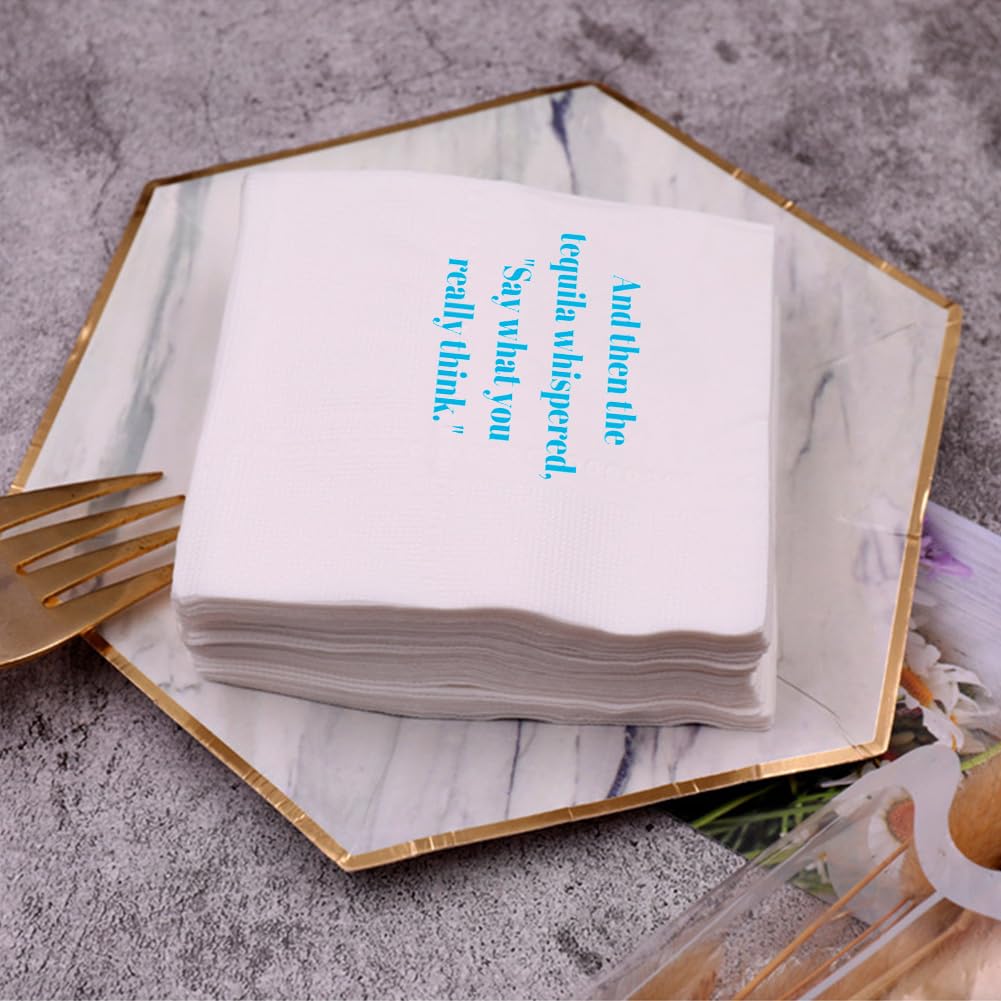 And then the
tequila whispered,
"Say what you
really think."